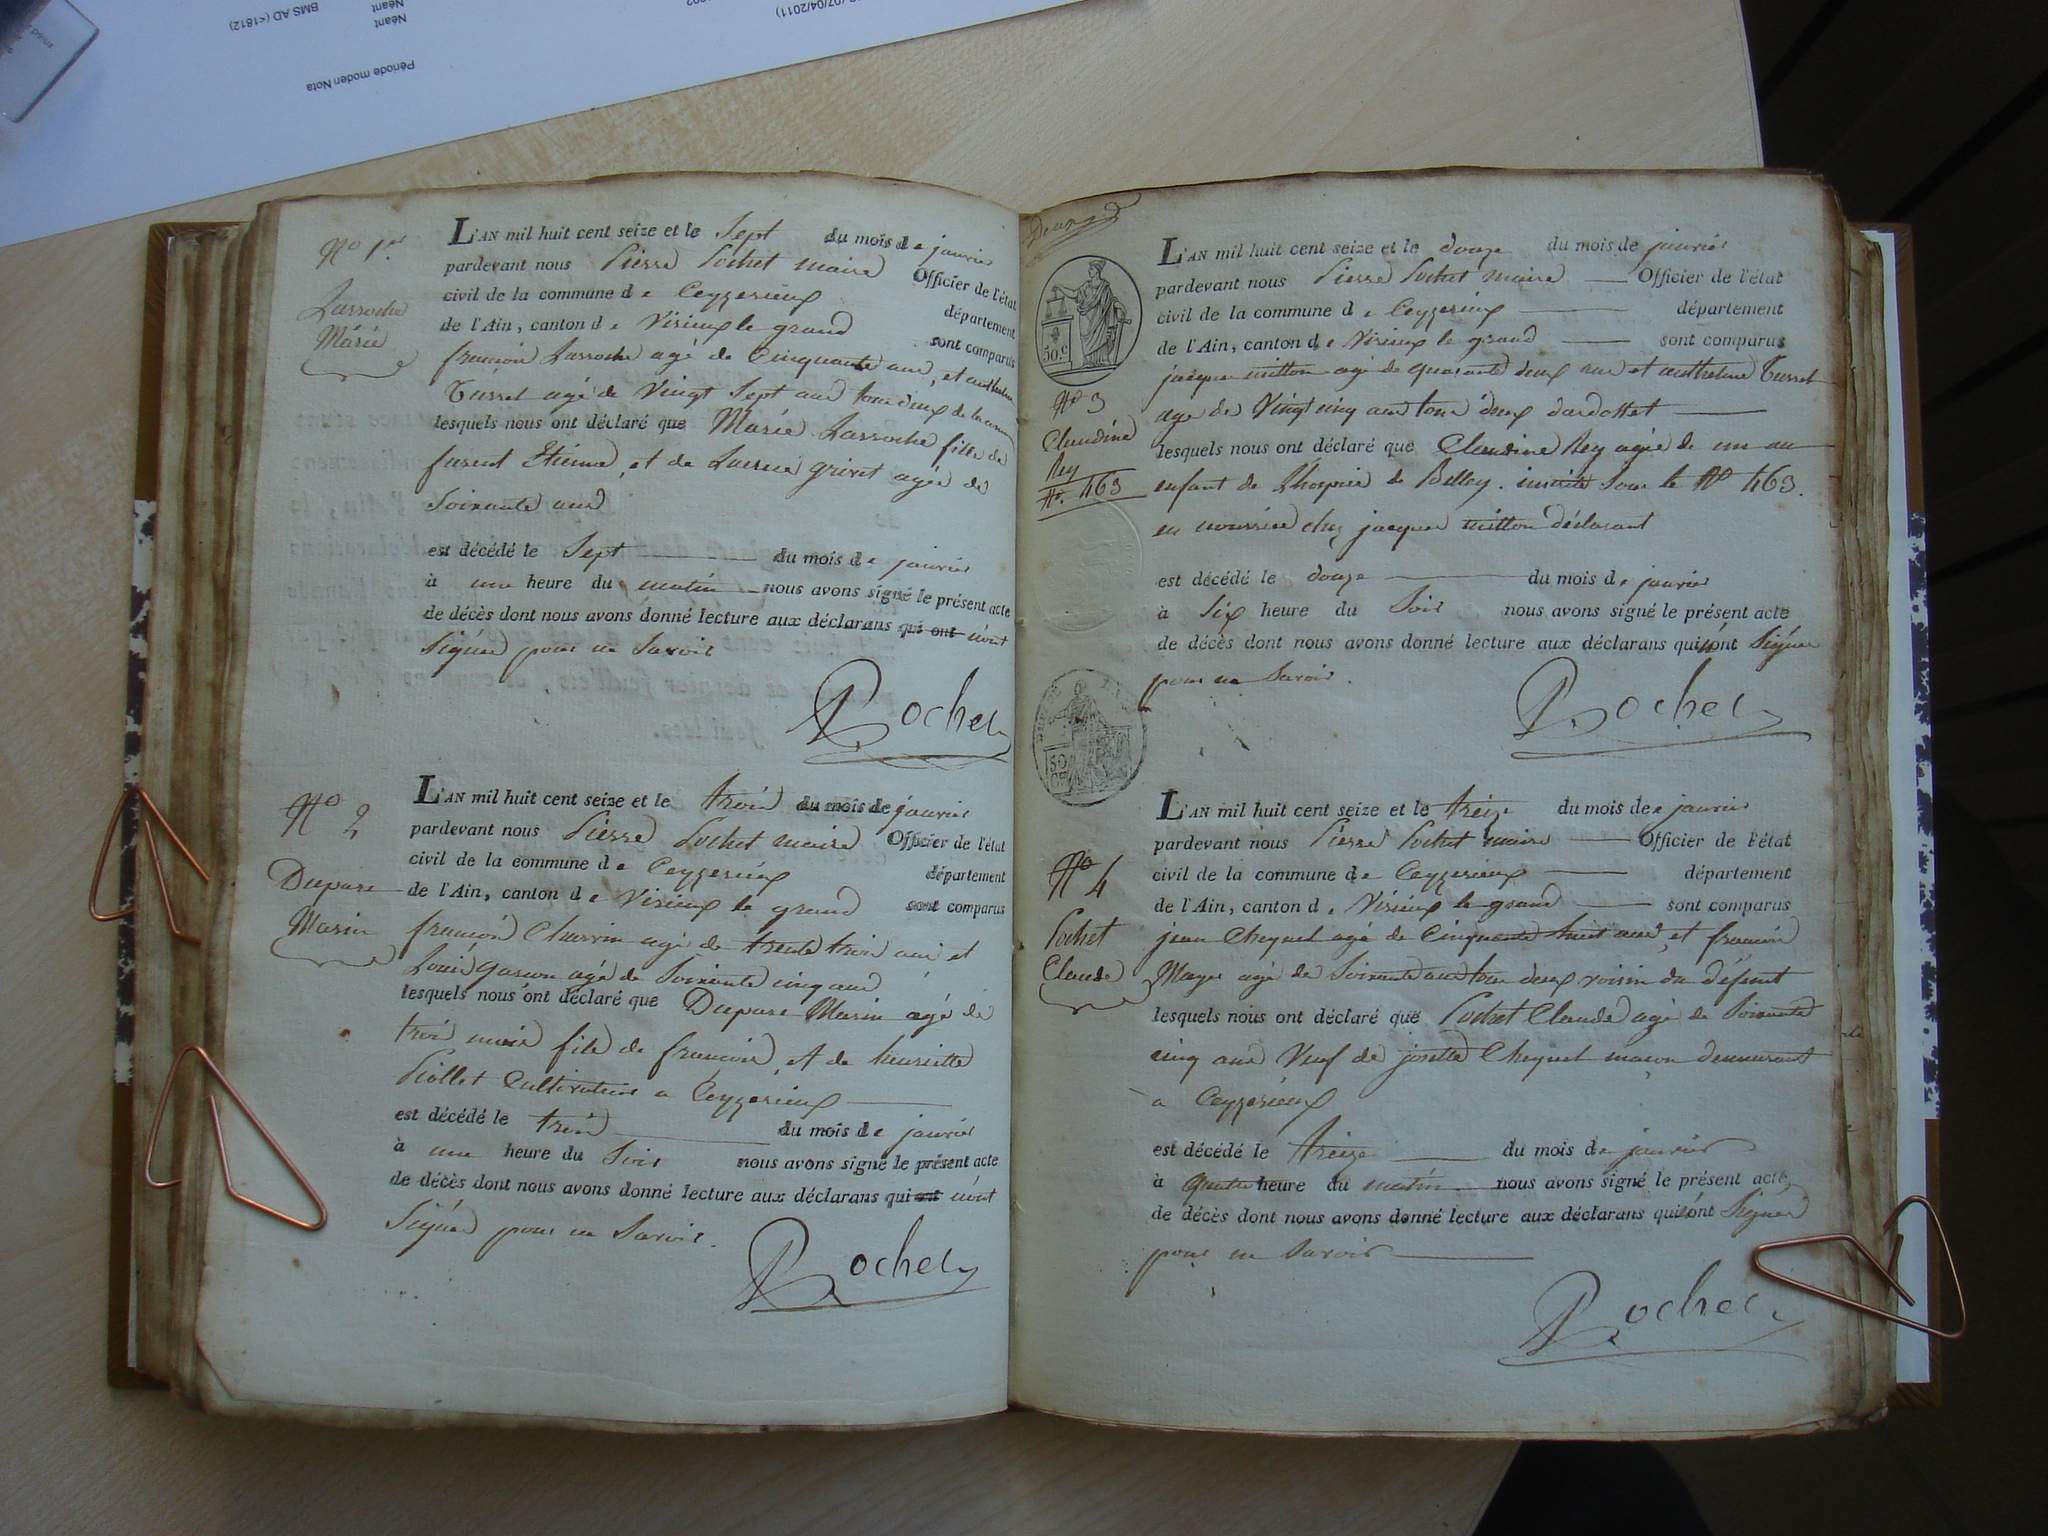 Période moden Nota
Néant
Néant
BMS AD (<1812)
07/04/2011)
No 1er
Larroche
Marie
L'AN mil huit cent seize et le Sept du mois de janvier
pardevant nous Pierre Pochet maire Officier de l'état
civil de la commune de Ceyzerieux département
de l'Ain, canton de Virieux le grand sont comparus
francois Larroche agé de Cinquante ans, et anthelme
Turrel agé de Vingt Sept ans tous deux de la
lesquels nous ont déclaré que Marie Larroche fille de
furent Etienne, et de grivet agée de
Soixante ans
est décédé le Sept du mois de janvier
à une heure du matin nous avons signé le présent acte
de décès dont nous avons donné lecture aux déclarans qui ont n'ont
Signés pour ne Savoir
Pochet
No 2
Dupare
Marin
L'AN mil huit cent seize et le trois du mois de janvier
pardevant nous Pierre Pochet maire Officier de l'état
civil de la commune de Ceyzerieux département
de l'Ain, canton de Virieux le grand sont comparus
francois Charvin agé de trente trois ans et
Louis gascon agé de Soixante cinq ans
lesquels nous ont déclaré que Dupare Marin agé de
trois mois fils de francois, et de henriette
Piollet Cultivateurs a Ceyzerieux
est décédé le trois du mois de janvier
à une heure du Soir nous avons signé le présent acte
de décès dont nous avons donné lecture aux déclarans qui ont n'ont
Signés pour ne Savoir.
Pochet
Deux
50.C
No 3
Claudine
Rey
No. 463
L'AN mil huit cent seize et le douze du mois de janvier
pardevant nous Pierre Pochet maire Officier de l'état
civil de la commune de Ceyzerieux département
de l'Ain, canton de Virieux le grand sont comparus
jacque mitton agé de quarante deux ans et anthelme Turrel
age de Vingt cinq ans tous deux dardosset
lesquels nous ont déclaré que Claudine Rey agée de un an
enfant de Lhospice de Belley. inscrite Sous le No 463.
en nourrice chez jacque mitton déclarant
est décédé le douze du mois de janvier
à Six heure du Soir nous avons signé le présent acte
de décès dont nous avons donné lecture aux déclarans qui n'ont Signés
pour ne Savoir.
Pochet
50
No 4
Pochet
Claude
L'AN mil huit cent seize et le treize du mois de janvier
pardevant nous Pierre Pochet maire Officier de l'état
civil de la commune de Ceyzerieux département
de l'Ain, canton de Virieux le grand sont comparus
jean Cheynel agé de Cinquante huit ans, et francois
Maye agé de Soixante ans tous deux voisin du défunt
lesquels nous ont déclaré que Pochet Claude agé de Soixante
cinq ans Veuf de josette Cheynel macon demeurant
a Ceyzerieux
est décédé le treize du mois de janvier
à quatre heure du matin nous avons signé le présent acte
de décès dont nous avons donné lecture aux déclarans qui n'ont Signés
pour ne Savoir
Pochet